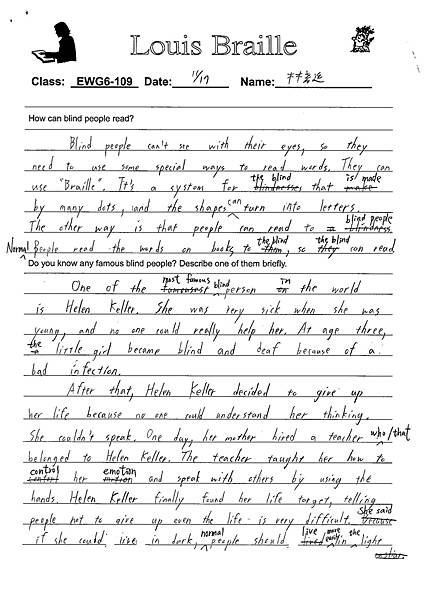 Louis Braille
Class: EWG6-109 Date: 11/17 Name:
How can blind people read?
Blind people can't see with their eyes, so they
need to use some special ways to read words. They can
the blind is/made
use "Braille". It's a system for blindnesses that make
can
by many dots, and the shapes turn into letters.
blind people
The other way is that people can read to blindness.
the blind the blind
Normal People read the words on books to them, so they can read
Do you know any famous blind people? Describe one of them briefly.
most famous blind in
One of the famousest person on the world
is Helen Keller. She was very sick when she was
young, and no one could really help her. At age three,
the
a little girl became blind and deaf because of a
bad infection.
After that, Helen Keller decided to give up
her life because no one could understand her thinking.
She couldn't speak. One day, her mother hired a teacher who/that
belonged to Helen Keller. The teacher taught her how to
control emotion
her and speak with others by using the
hands. Helen Keller finally found her life target, telling
She said
people not to give up even the life is very difficult. Because
normal live more easily the
if she could live in dark, people should lived in light